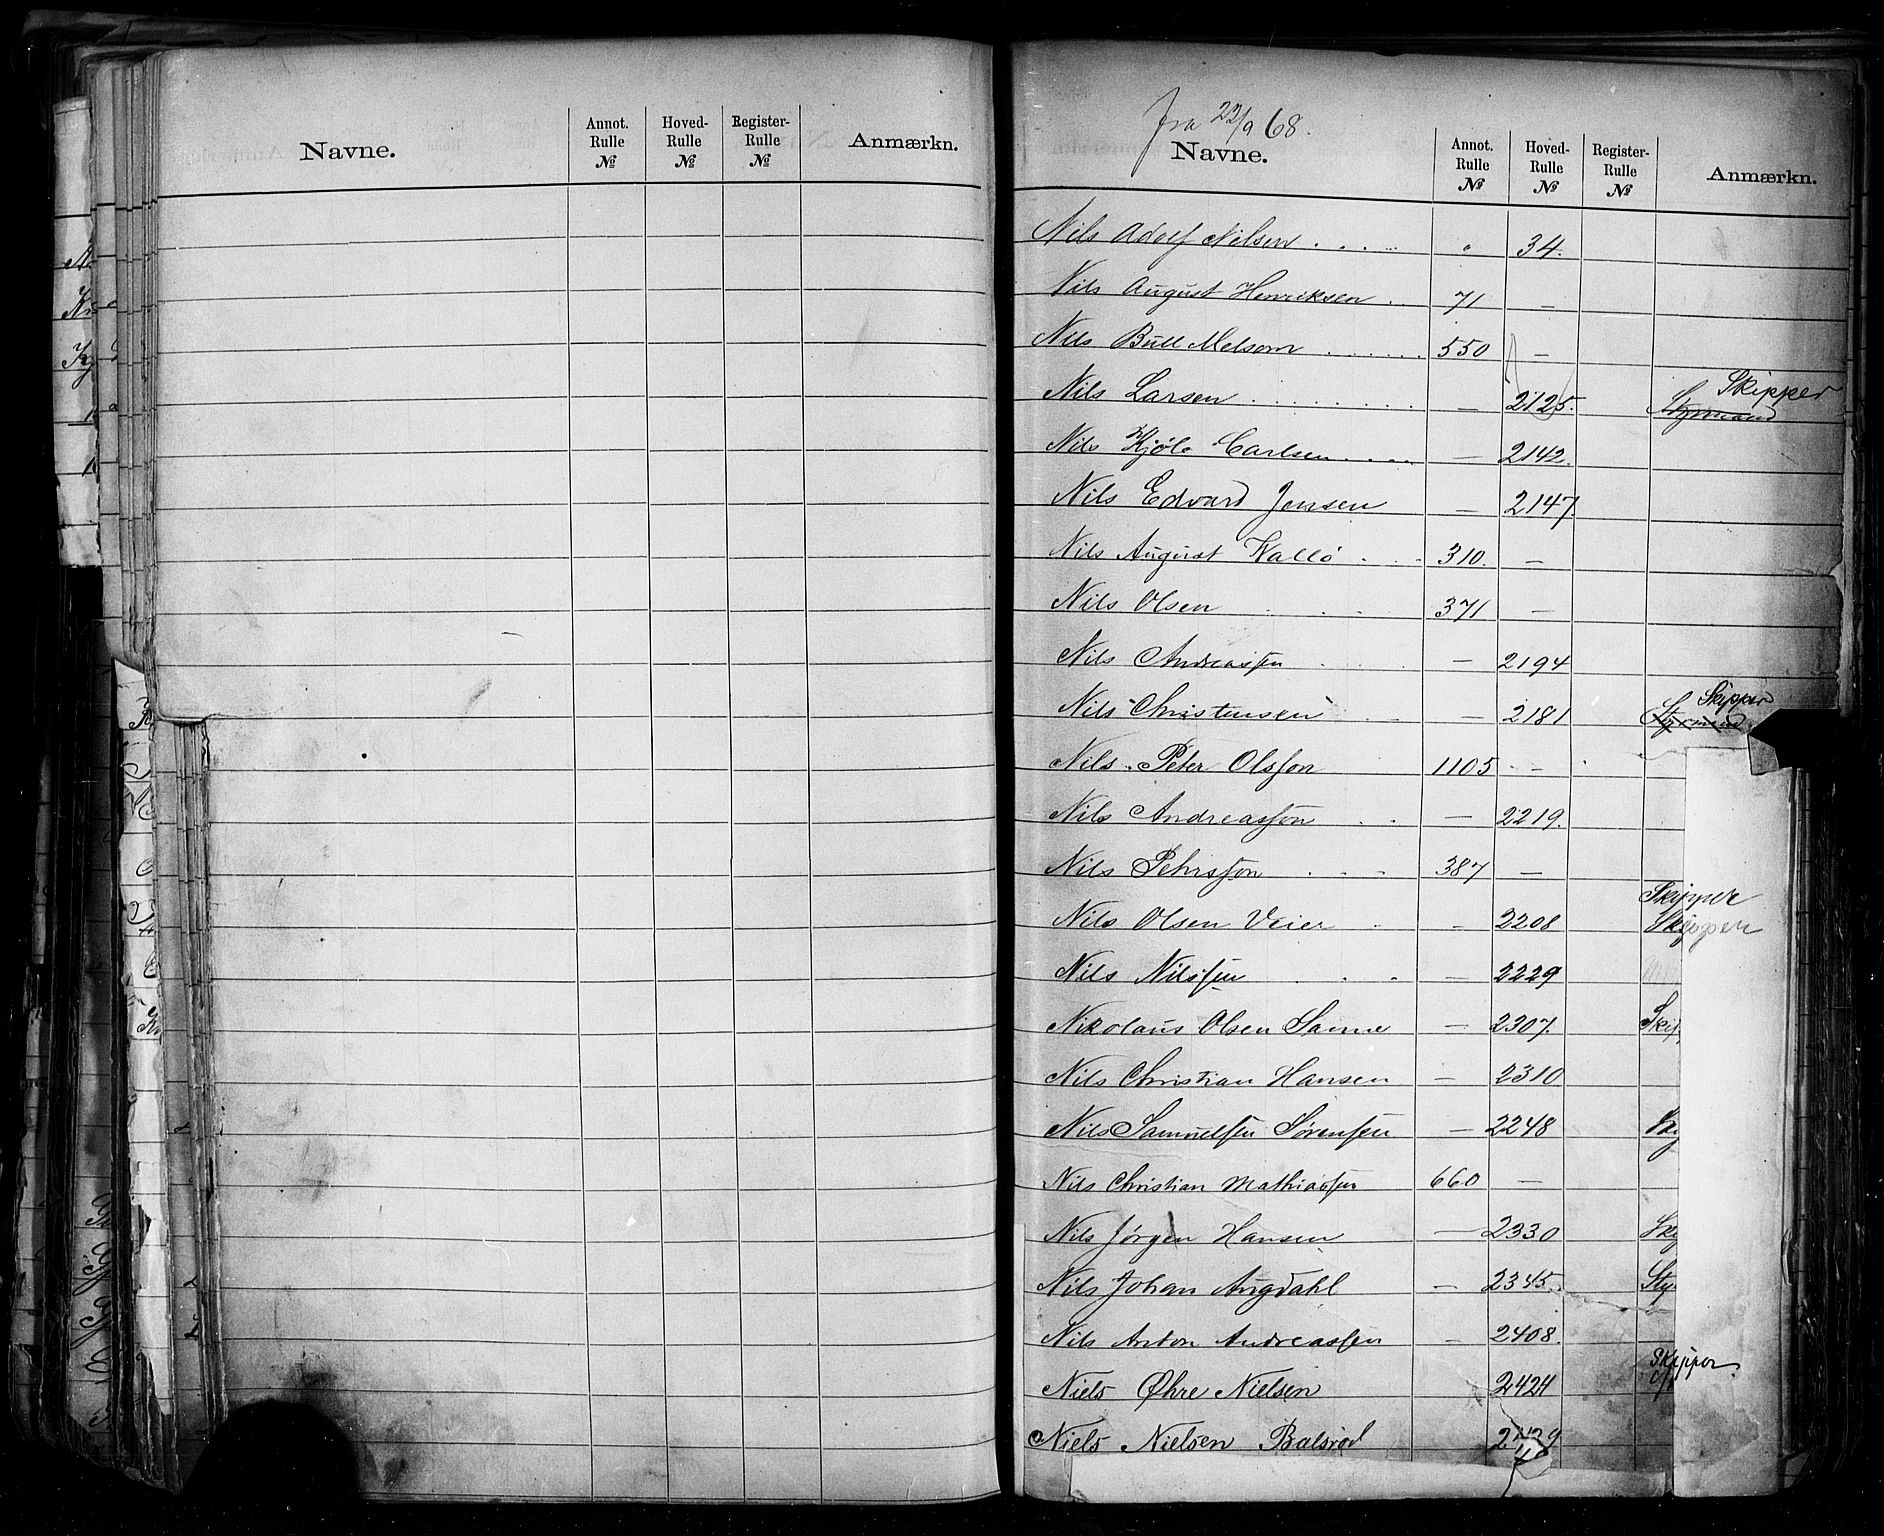 Navne. Annot. Rulle № Hoved-Rulle № Register-Rulle № Anmærkn.
fra 22/9 68.
Navne. Annot. Rulle № Hoved-Rulle № Register-Rulle № Anmærkn.
Nils Adolf Nilsen . . . . " 34.
Nils August Henriksen . . 71 —
Nils Bull Melsom . . . . . . 550 —
Skipper
Nils Larsen . . . . . . . . — 2125. Styrmand
Nils Kjöle Carlsen . . . . — 2142.
Nils Edvard Jensen — 2147.
Nils August Kallö . . . 310. —
Nils Olsen . . . 371 —
Nils Andreassen . . — 2194
Skipper
Nils Christensen . . — 2181 Styrmand
Nils Peter Olsson 1105 —
Nils Andreasson . . — 2219.
Nils Pehrsson . . . 387 —
Skipper
Nils Olsen Veier . — 2208 Skipper
Nils Nilssen . . . — 2229
Nikolaus Olsen Sanne — 2307. Skip
Nils Christian Hansen — 2310
Nils Samuelsen Sørensen — 2248
Nils Christian Mathiassen 660 —
Nils Jørgen Hansen — 2330 Sk
Nils Johan Augdahl — 2345. Sty
Nils Anton Andreassen — 2408.
Skipper
Niels Øhre Nielsen 2424
Niels Nielsen Balsrød